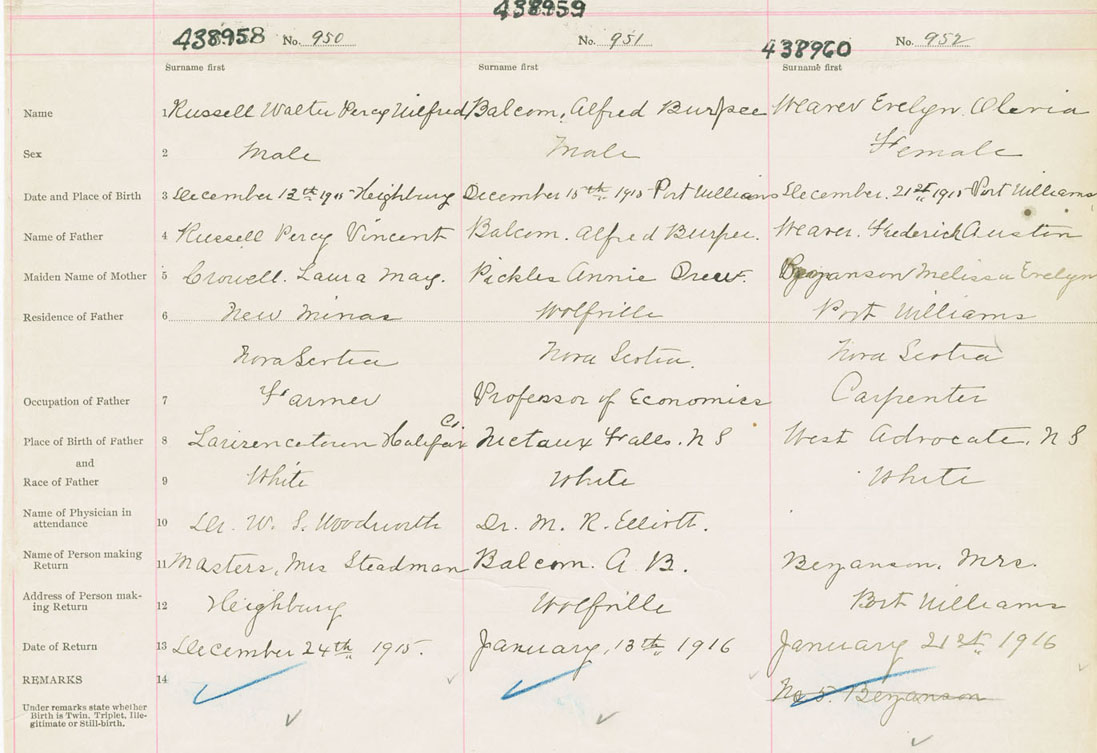 438959
438958 No. 950 No. 951 438960 No. 952
Surname first Surname first Surname first
Name 1 Russell Walter Percy Wilfred Balcom, Alfred Burpee Weaver Evelyn Olevia
Sex 2 Male Male Female
Date and Place of Birth 3 December 12th 1915 Heighbury December 15th 1915 Port Williams December 21st 1915 Port Williams
Name of Father 4 Russell Percy Vincent Balcom. Alfred Burpee. Weaver. Frederick Austin
Maiden Name of Mother 5 Crowell. Laura May. Pickles Annie Drew. Bezanson Melissa Evelyn
Residence of Father 6 New Minas Wolfville Port Williams
Nova Scotia Nova Scotia. Nova Scotia
Occupation of Father 7 Farmer Professor of Economics Carpenter
Co.
Place of Birth of Father 8 Larisencetown Halifax Nictaux Falls. N S West Advocate. N S
and
Race of Father 9 White White White
Name of Physician in
attendance 10 Dr. W. S. Woodworth Dr. M. R. Elliott.
Name of Person making
Return 11 Masters, Mrs Steadman Balcom. A. B. Bezanson, Mrs.
Address of Person mak-
ing Return 12 Heighbury Wolfville Port Williams
Date of Return 13 December 24th 1915. January, 13th 1916 January 21st 1916
REMARKS 14 No 5. Bezanson
Under remarks state whether
Birth is Twin, Triplet, Ille-
gitimate or Still-birth.